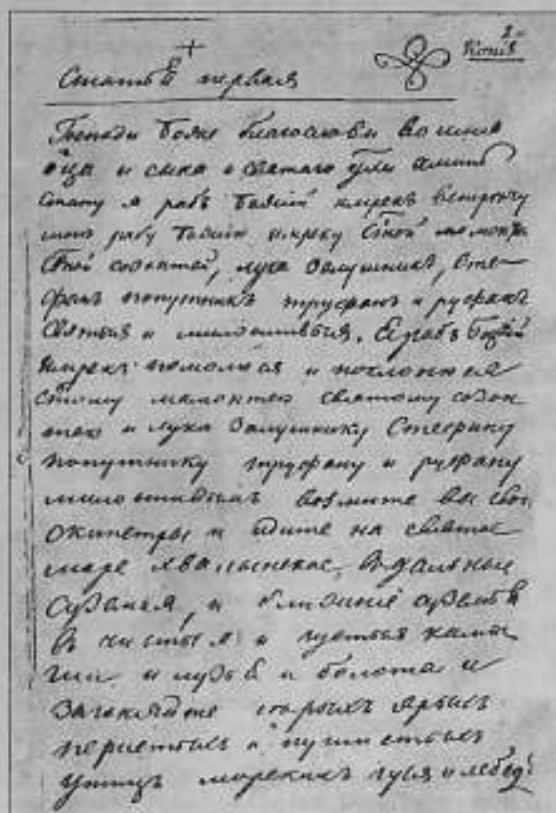 2
Копiя
Статья первая
Господи боже благослови во имя
оца и сына и святаго духа аминь
стану я рабъ божiй имрекъ
рабу божiю имреку
святой созонтей, лука залушникъ, Сте-
фанъ попутникъ труфанъ и руфанъ
святыя и милостивыя. Я рабъ божiй
имрекъ помолюся и поклонюся
стому мамонтею святому созон
тею и лука залушнику Стефану
попутнику труфану и руфану
милостивымъ возмите вы свои
скипетры и идите на святое
море хвалынское, в дальные
и ближнiе
в чистыя и густыя камы
ши и лузья и болота и
загоняйте старыхъ ярыхъ
перистыхъ и пушистыхъ
утицъ морскихъ гуся и лебедь